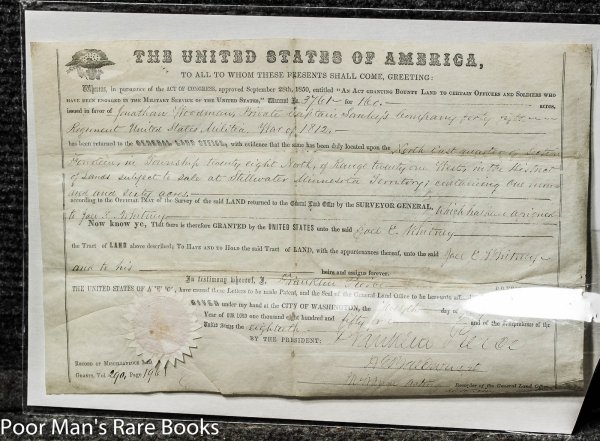 THE UNITED STATES OF AMERICA,
TO ALL TO WHOM THESE PRESENTS SHALL COME, GREETING:
Whereas, in pursuance of the ACT OF CONGRESS, approved September 28th, 1850, entitled "AN ACT GRANTING BOUNTY LAND TO CERTAIN OFFICERS AND SOLDIERS WHO
HAVE BEEN ENGAGED IN THE MILITARY SERVICE OF THE UNITED STATES," Warrant No. 3761 for 160 acres,
issued in favor of Jonathan Woodman, Private Captain Company forty eight
Regiment United States Militia, War of 1812,
has been returned to the GENERAL LAND OFFICE, with evidence that the same has been duly located upon the North East quarter of Section
Fourteen, in Township twenty eight North, of Range twenty one West, in the District
of Lands subject to sale at Stillwater Minnesota Territory, containing one hundred
and sixty acres
according to the OFFICIAL PLAT of the Survey of the said LAND returned to the General Land Office by the SURVEYOR GENERAL, which has been assigned
to Joel E. Whitney
Now know ye, That there is therefore GRANTED BY THE UNITED STATES unto the said Joel E. Whitney
the Tract of LAND above described; TO HAVE AND TO HOLD the said Tract of LAND, with the appurtenances thereof, unto the said Joel E. Whitney
and to his heirs and assigns forever.
In testimony whereof, I, Franklin Pierce
THE UNITED STATES OF AMERICA, have caused these Letters to be made Patent, and the Seal of the General Land Office to be hereunto affixed.
GIVEN under my hand at the CITY OF WASHINGTON, the day of
YEAR OF OUR LORD one thousand eight hundred and fifty and of the Independence of the
United States the eightieth
BY THE PRESIDENT: Franklin Pierce
Recorder of the General Land Office
RECORD OF MISCELLANEOUS LAND
GRANTS, Vol. 290, Page 196
Poor Man's Rare Books